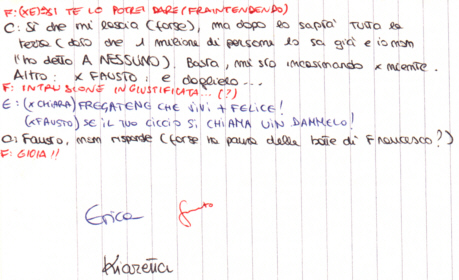 F: (XE) SI TE LO POTREI DARE (FRAINTENDENDO)
C: Sì che mi lascia (forse), ma dopo lo saprà tutta la
terra (dato che 1 milione di persone lo sa già e io non
l'ho detto A NESSUNO). Basta, mi sto incasinando x niente.
Altro: x FAUSTO: e daglielo...
F: INTRUSIONE INGIUSTIFICATA... (?)
E: (x CHIARA) FREGATENE CHE VIVI + FELICE!
(x FAUSTO) SE IL TUO CICCIO SI CHIAMA VIN DAMMELO!
C: Fausto, non risponde (forse ha paura delle botte di Francesco?)
F: GIOIA!!
Erica
Kiaretta